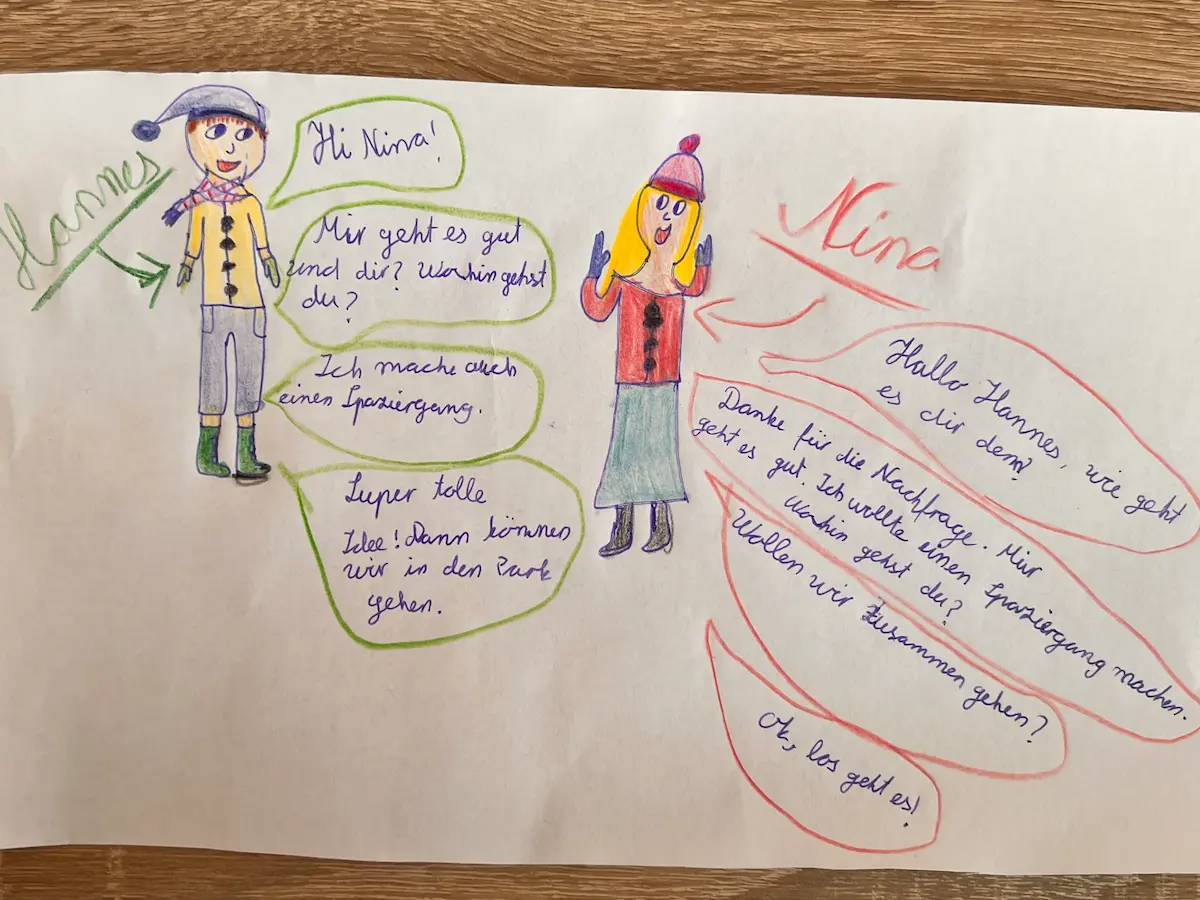 Hannes
Hi Nina!
Mir geht es gut
und dir? Wohin gehst
du?
Ich mache auch
einen Spaziergang.
Super tolle
Idee! Dann können
wir in den Park
gehen.
Nina
Hallo Hannes, wie geht
es dir denn?
Danke für die Nachfrage. Mir
geht es gut. Ich wollte einen Spaziergang machen.
Wohin gehst du?
Wollen wir zusammen gehen?
Ok, los geht es!